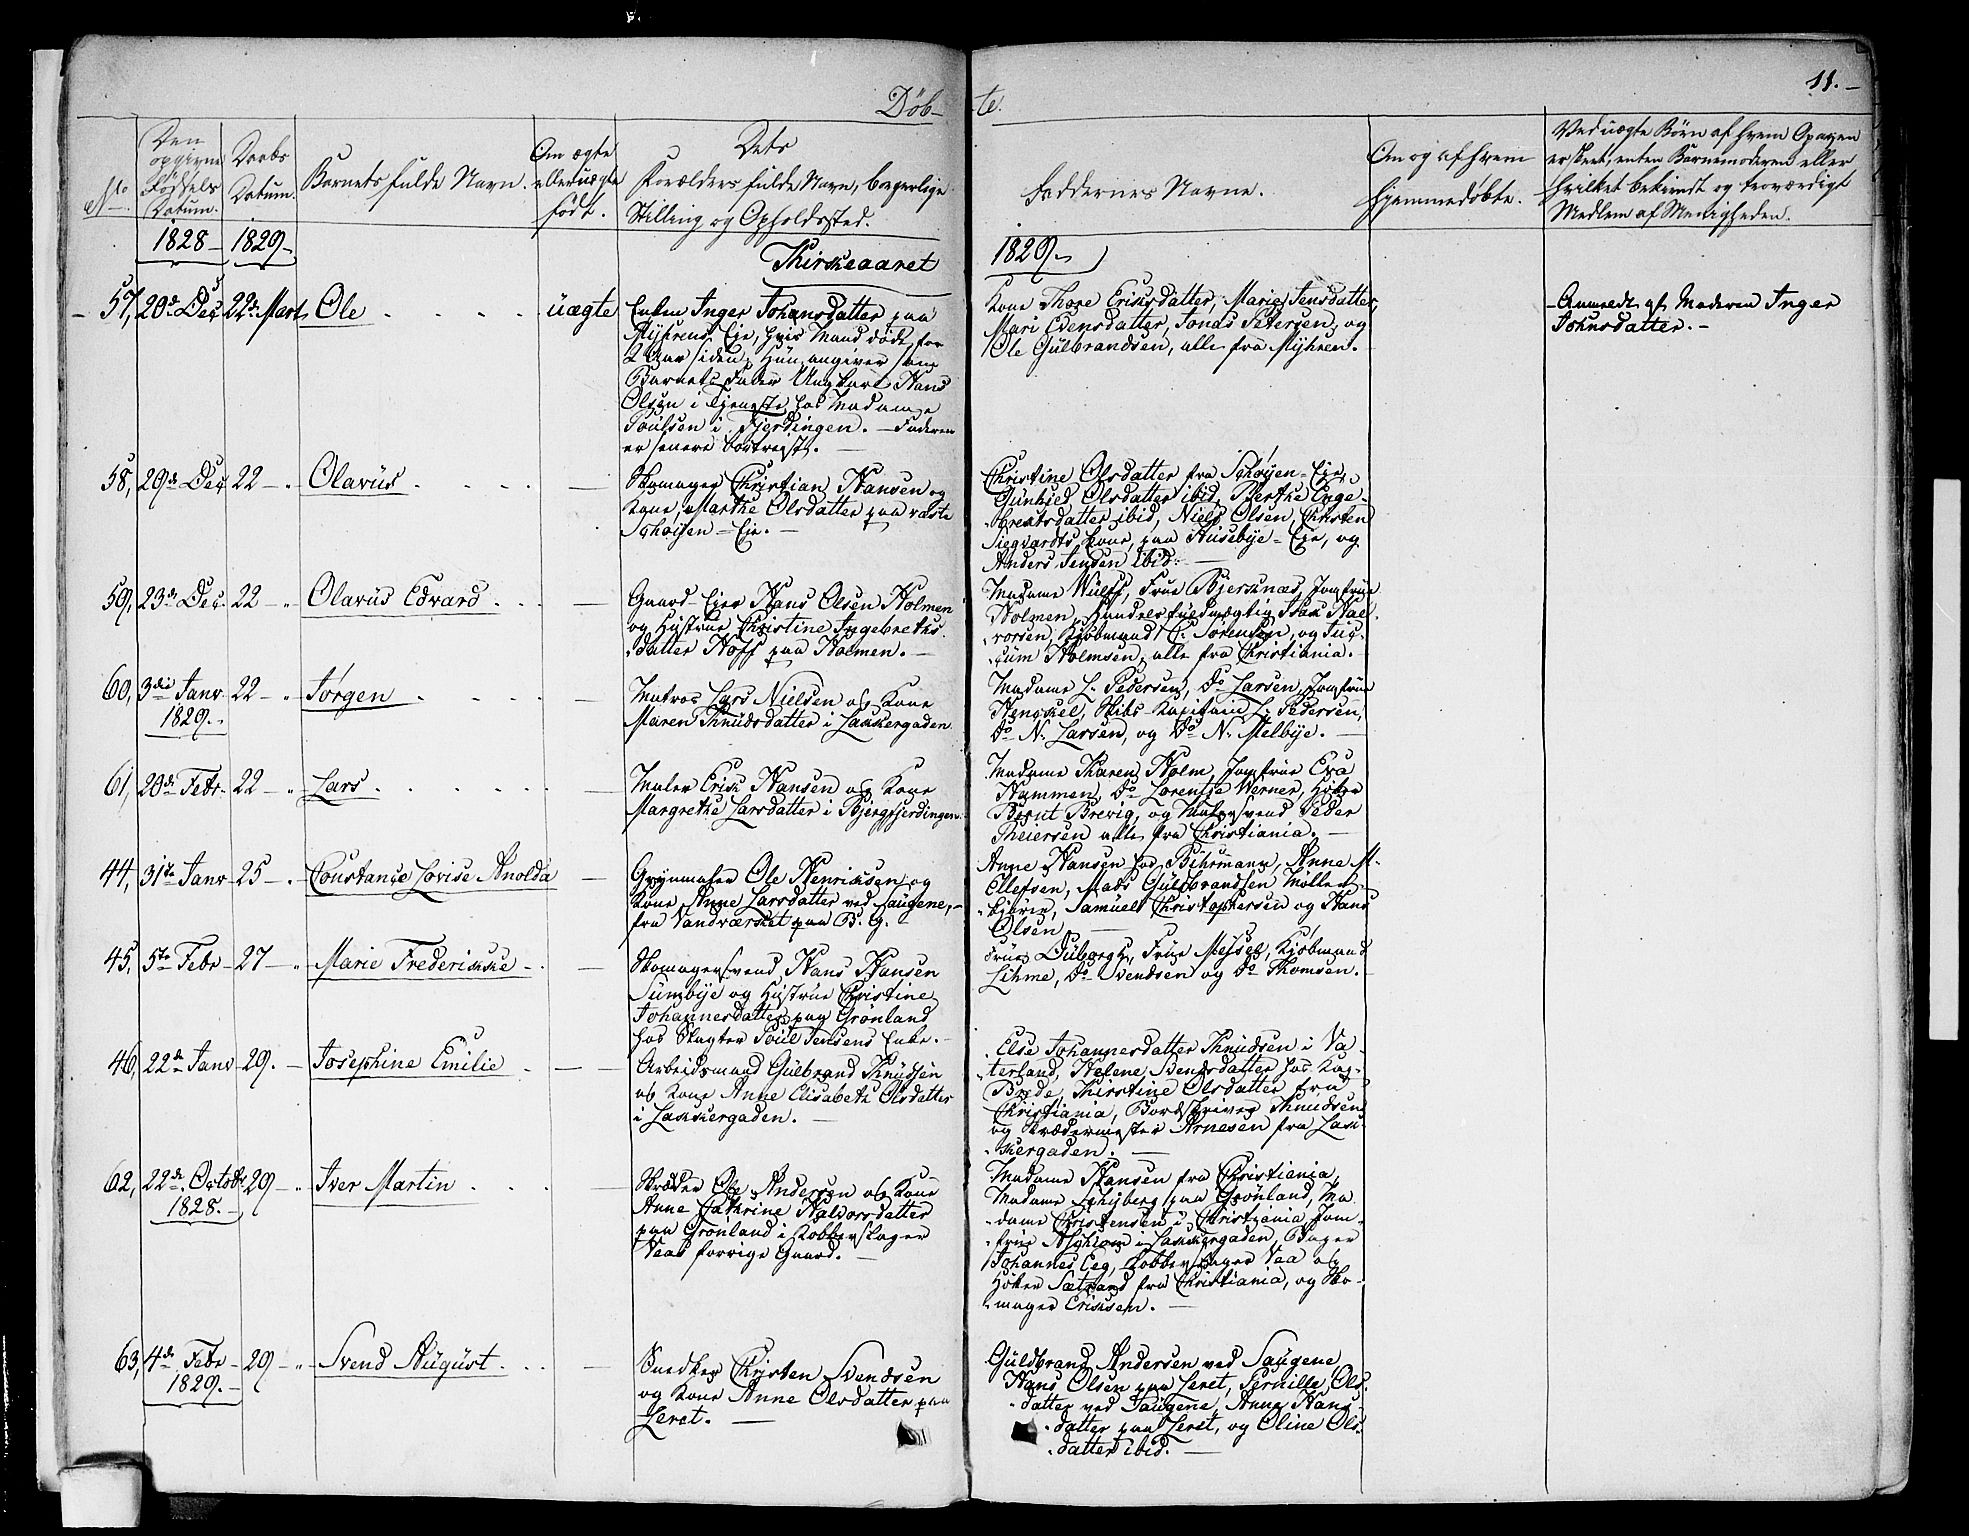 Döb-
te.
11.-
No
Den opgivne Fødsels Datum.
Daabs Datum.
Barnets fulde Navn.
Om ægte eller uægte født.
Dets
Forældres fulde Navn, borgerlige
Stilling og Opholdssted.
Faddernes Navne.
Om og af hvem
hjemmedøbte.
Ved uægte Børn af hvem Opgaven
er skeet, enten Barnemoderen eller
hvilket bekiendt og troværdigt
Medlem af Menigheden.
1828- 1829-
Kirkeaaret
1829.-
57, 20de Dec 22de Mart Ole uægte
Enken Inger Johansdatter paa
Myhrens Eje, hvis Mand døde for
2 Aar siden, Hun angiver som
Barnets Fader Ungkarl Hans
Olsen i Tjeneste hos Madame
Poulsen i Fjerdingen. - Faderen
er senere bortreist. -
Kone Thore Ericksdatter, Marie Jensdatter,
Mari Edensdatter, Jonas Petersen, og
Ole Gulbrandsen, alle fra Myhren.
Anmeldt af Moderen Inger
Johnsdatter.-
58, 29de Dec 22 - Olavus
Skomager Christian Hansen og
Kone Marthe Olsdatter paa
Schøijen - Eje. -
Christine Olsdatter fra Schøyen - Eje,
Gunhild Olsdatter ibid, Berthe Enge-
brektsdatter ibid, Niels Olsen, Christen
Siegvardts Kone, paa Husebye - Eje, og
Anders Jensen ibid.
59, 23de Dec. 22 - Olavus Edvard
Gaard-Ejer Hans Olsen Holmen
og Hustrue Christine Ingebreths-
datter Hoff paa Holmen. -
Madame Wulff, Frue Bjerknæs, Jomfrue
Holmen, Handelsfuldmægtig Isak Hal-
vorsen, Kjøbmand C. Sorensen, og
Holmsen, alle fra Christiania. -
60, 3die Janv 22 - Jørgen
1829.-
Matros Lars Nielsen og Kone
Maren Knudsdatter i Lakkergaden
Madame L. Pedersen, Do Larsen, Jomfrue
Henckel, Skibs-Kapitain L. Pedersen,
Do N. Larsen, og Do N. Melbye. -
61, 20de Febr- 22 - Lars
Maler Erick Hansen og Kone
Margrethe Larsdatter i Bjergfjerdingen.
Madame Karen Holm, Jomfrue Eva
Hammen, Do Lorentse Werner, Høker
Bernt Brevig, og Malersvend Peder
Theiersen alle fra Christiania. -
44, 31te Janv 25 - Constance Lovise Anolda
Grynmaler Ole Henriksen og
Kone Anne Larsdatter ved Saugene,
fra Vandværket paa B. G.
Anne Hansen hos Bihrmann, Anne M.
Ellefsen, Mads Guldbrandsen Møller-
Samuel Christophersen og Hans
Olsen -
45, 5te Febr- 27 - Marie Frederikke
Skomagersvend Hans Hansen
Sundbye og Hustrue Christine
Johannesdatter paa Grønland
hos Slagter Poul Jensens Enke. -
Frue Duborgh, Frue Messel, Kjøbmand
Lihme, Do Svendsen og Do Thomsen. -
46, 22de Janv 29. - Josephine Emilie
Arbeidsmand Gulbrand Knudsen
og Kone Anne Elisabeth Olsdatter
i Lakkergaden. -
Else Johannesdatter Knudsen i Va-
terland, Helene Bentsdatter hos Kap-
Brede, Kirstine Olsdatter fra
Christiania, Bordskriver Knudsen
og Skrædermester Arnesen fra Lak-
kergaden. -
62, 22de Octobr 29 - Iver Martin
1828.-
Skræder Ole Andersen og Kone
Anne Cathrine Halvorsdatter
paa Grønland i Kobberslager
Veas forrige Gaard. -
Madame Hansen fra Christiania,
Madame Schyberg paa Grønland, Ma-
dame Christensen i Christiania, Jom-
frue i Lakkergaden, Bager
Johannes Eeg, Kobberslager Vea og
Høker Sætrand fra Christiania, og Sko-
mager Ericksen. -
63, 4de Febr- 29 - Svend August
1829.-
Snedker Christen Svendsen
og Kone Anne Olsdatter paa
Leret. -
Guldbrand Andersen ved Saugene,
Hans Olsen paa Leret, Pernille Ols-
datter ved Saugene, Anne Hans-
datter paa Leret, og Oline Ols-
datter ibid. -